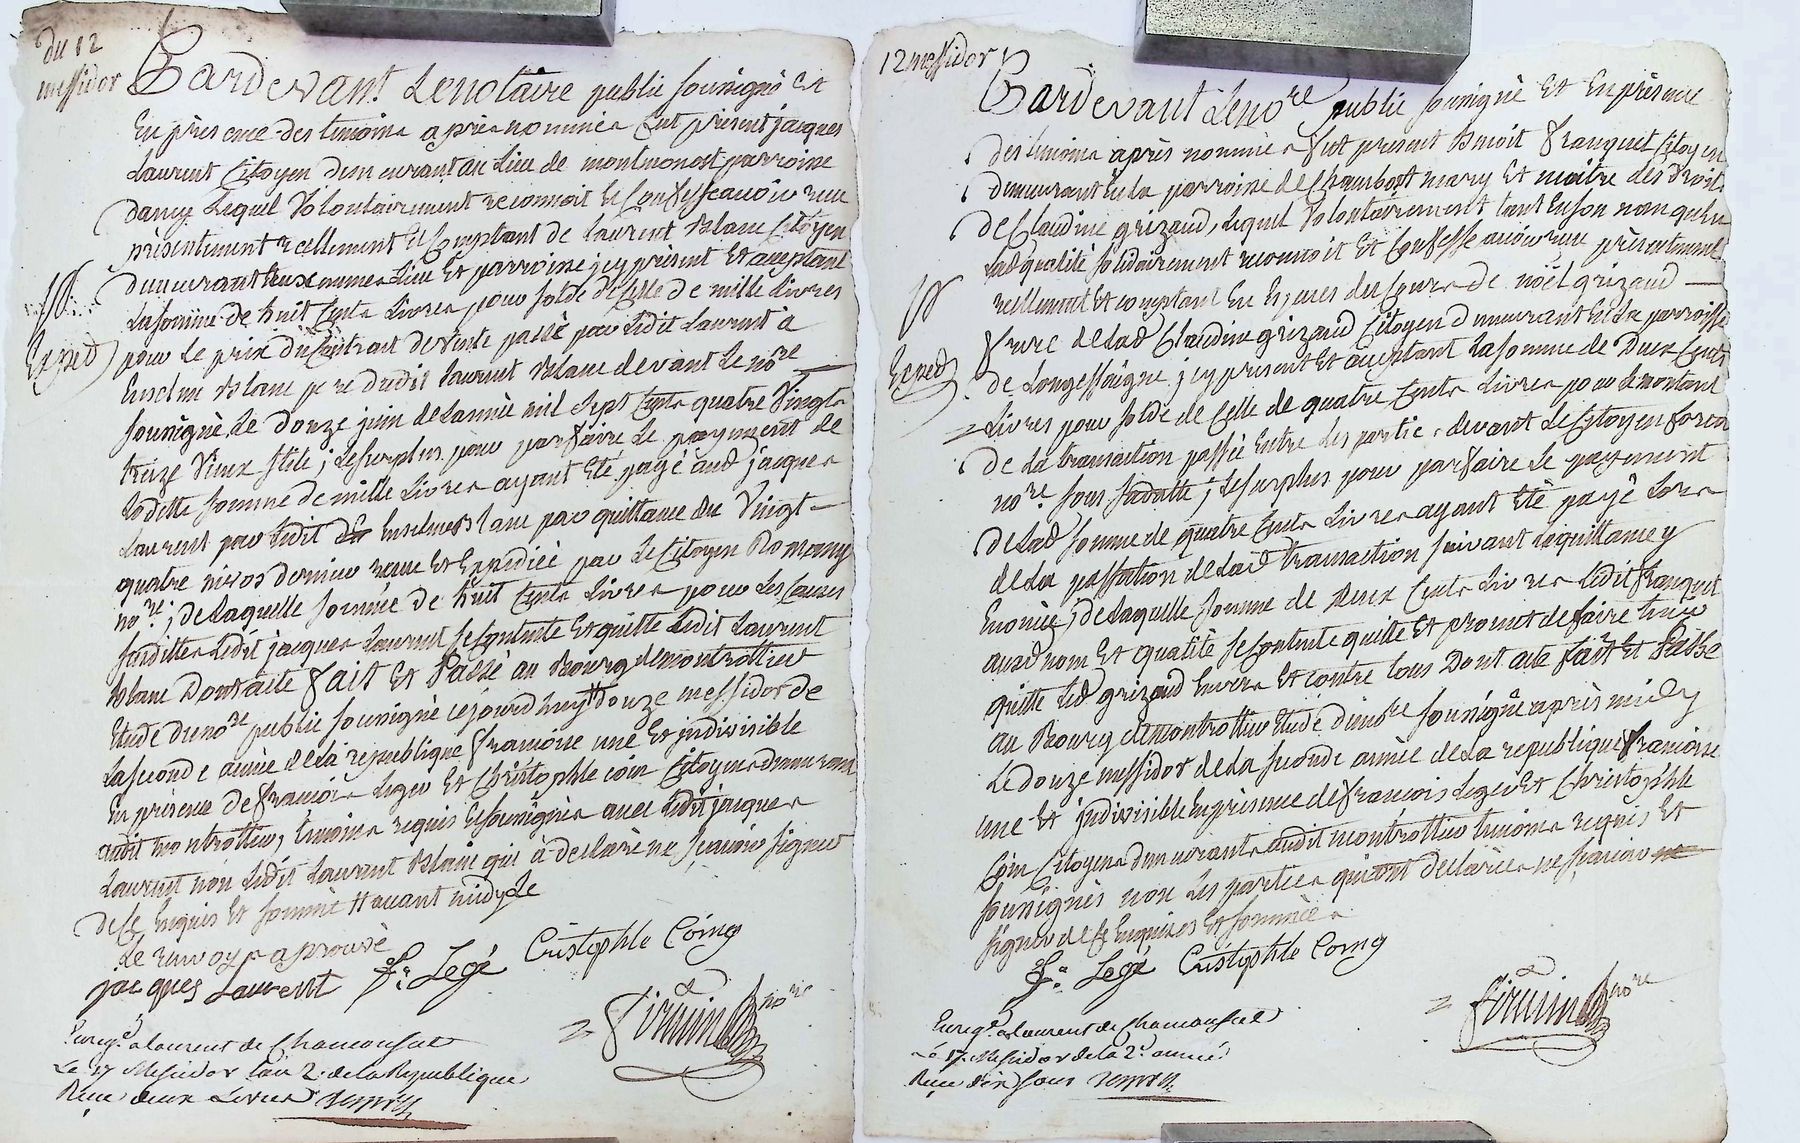 du 12
messidor
Pardevant Lenotaire public soussigné Et
En présence des temoins après nommés Eut présent jacques
Laurent Citoyen demeurant au Lieu de montmonost parroisse
dancy Lequel Volontairement reconnoit Et Confesse avoir reçu
présentement réellement Et Comptant de Laurent blanc Citoyen
demeurant Lieu Et parroisse jcy présent Et acceptant
La somme de huit Cents Livres pour solde de Celle de mille Livres
pour Le prix du Contrat de vente passé par Ledit Laurent à
Enselme blanc pere dudit Laurent blanc devant Le nore
soussigné Le douze juin de Lannée mil sept Cents quatre Vingt
treize Vieux stile ; Le surplus pour parfaire Le payement de
Ladite somme de mille Livres ayant Eté payé aud jacques
Laurent par Ledit Enselme blanc par quittance du Vingt
quatre nivos dernier reçue Et Expediée par Le Citoyen Romany
nore ; de Laquelle somme de huit Cents Livres pour Les Causes
susdittes Ledit jacques Laurent se Contente Et quitte Ledit Laurent
blanc Dont acte fait Et Passé au Bourg de montrottier
Etude dunore public soussigné cejourdhuy # douze messidor de
La seconde année de La republique françoise une Et jndivisible
En présence de françois Leger Et Christophle coin Citoyens demeurant
audit montrottier, temoins requis Et soussignés avec Ledit jacques
Laurent non Ledit Laurent blanc qui à declaré ne sçavoir signer
de ce Enquis Et sommé # avant midy Le
Le renvoy approuvé
jacques Laurent fs Legé Cristophle Coing
firmin nore
Expéd
Enregé a Laurent de Chamousset
Le 17 Messidor L'an 2e de la Republique
Reçu deux Livres
12 messidor
Pardevant Lenore public soussigné Et En présence
des temoins après nommés fut présent Benoit franquet Citoyen
demeurant En La parroisse de Chambost neary Et maitre des droits
de Claudine grizaud, Lequel Volontairement tant En son nom qu'en
lad qualité solidairement reconnoit Et Confesse avoir reçu présentement
reellement Et comptant En Especes du Cours de noël grizaud
frere de lad Claudine grizaud Citoyen demeurant En La parroisse
de Longessaigne jcy présent Et acceptant La somme de Deux Cents
Livres pour solde de Celle de quatre Cents Livres pour Le montant
de La transaction passée Entre Les parties devant Le Citoyen forea
nore sous sa datte ; Le surplus pour parfaire Le payement
de Lad somme de quatre Cents Livres ayant Eté payé Lors
de La passation de Lad transaction suivant La quittance y
Enoncée ; de Laquelle somme de Deux Cents Livres Ledit franquet
aux nom Et qualité se Contente quitte Et promet de faire tenir
quitte Led grizaud Envers Et contre tous Dont acte fait Et Passé
au Bourg de montrottier Etude dunore soussigné après midy
Le douze messidor de La seconde année de La republique françoise
une Et jndivisible En présence de françois Leger Et Christophle
Coin Citoyens demeurants audit montrottier temoins requis Et
soussignés non Les parties qui ont declarées ne sçavoir
signer de ce Enquises Et sommées
fs Legé Cristophle Coing
firmin nore
Expéd
Enregé a Laurent de Chamousset
Le 17 Messidor de la 2e année
Reçu dix sous